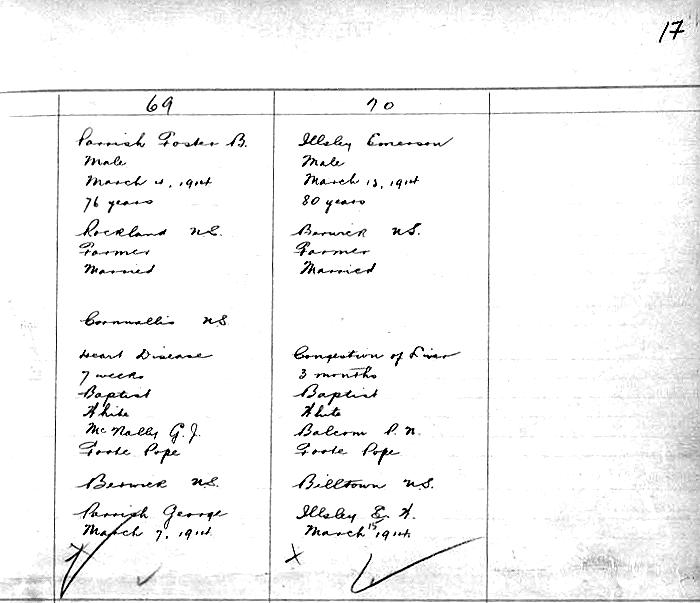 17
69
Parrish Foster B.
Male
March 4, 1914
76 years
Rockland N.S.
Farmer
Married
Cornwallis N.S.
Heart Disease
7 weeks
Baptist
White
McNally G. J.
Foote Pope
Berwick N.S.
Parrish George
March 7, 1914
70
Illsley Emerson
Male
March 13, 1914
80 years
Berwick N.S.
Farmer
Married
Congestion of Liver
3 months
Baptist
White
Balcom P. N.
Foote Pope
Billtown N.S.
Illsley E. A.
March 15 1914